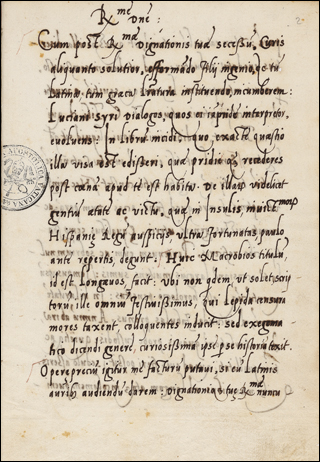 R.me Dne:
Cum post R.mae Dignationis tuae secessu, Curis
aliquanto solutior, efformando filij ingenio, et tu
Latina, tum graeca lratura instituendo, incumberem:
Luciani syri dialogos, quos ei rapide interpretor,
euoluens: In Libru incidi, quo exacte quaestio
illa visa est edisseri, quae pridie quam recederes
post caena apud te est habita. De illa videlicet
gentiu aetate ac victu, quae in Insulis,
Hispaniae Regu auspicijs vltra fortunatas paulo
ante repertis, degunt. Hunc Macrobios titulu,
id est Longaeuos, facit. Vbi non qdem, vt solet, scrip
toru, ille omniu festiuissimus, qui lepida censura
mores taxent, colloquentes inducit: sed exegema
tico dicendi genere, curiosissima ipse per se historia texit.
Opereprecium igitur me facturu putaui, si eu Latinis
auribus audiendu darem: Dignationisque tuae R.mae nuncu